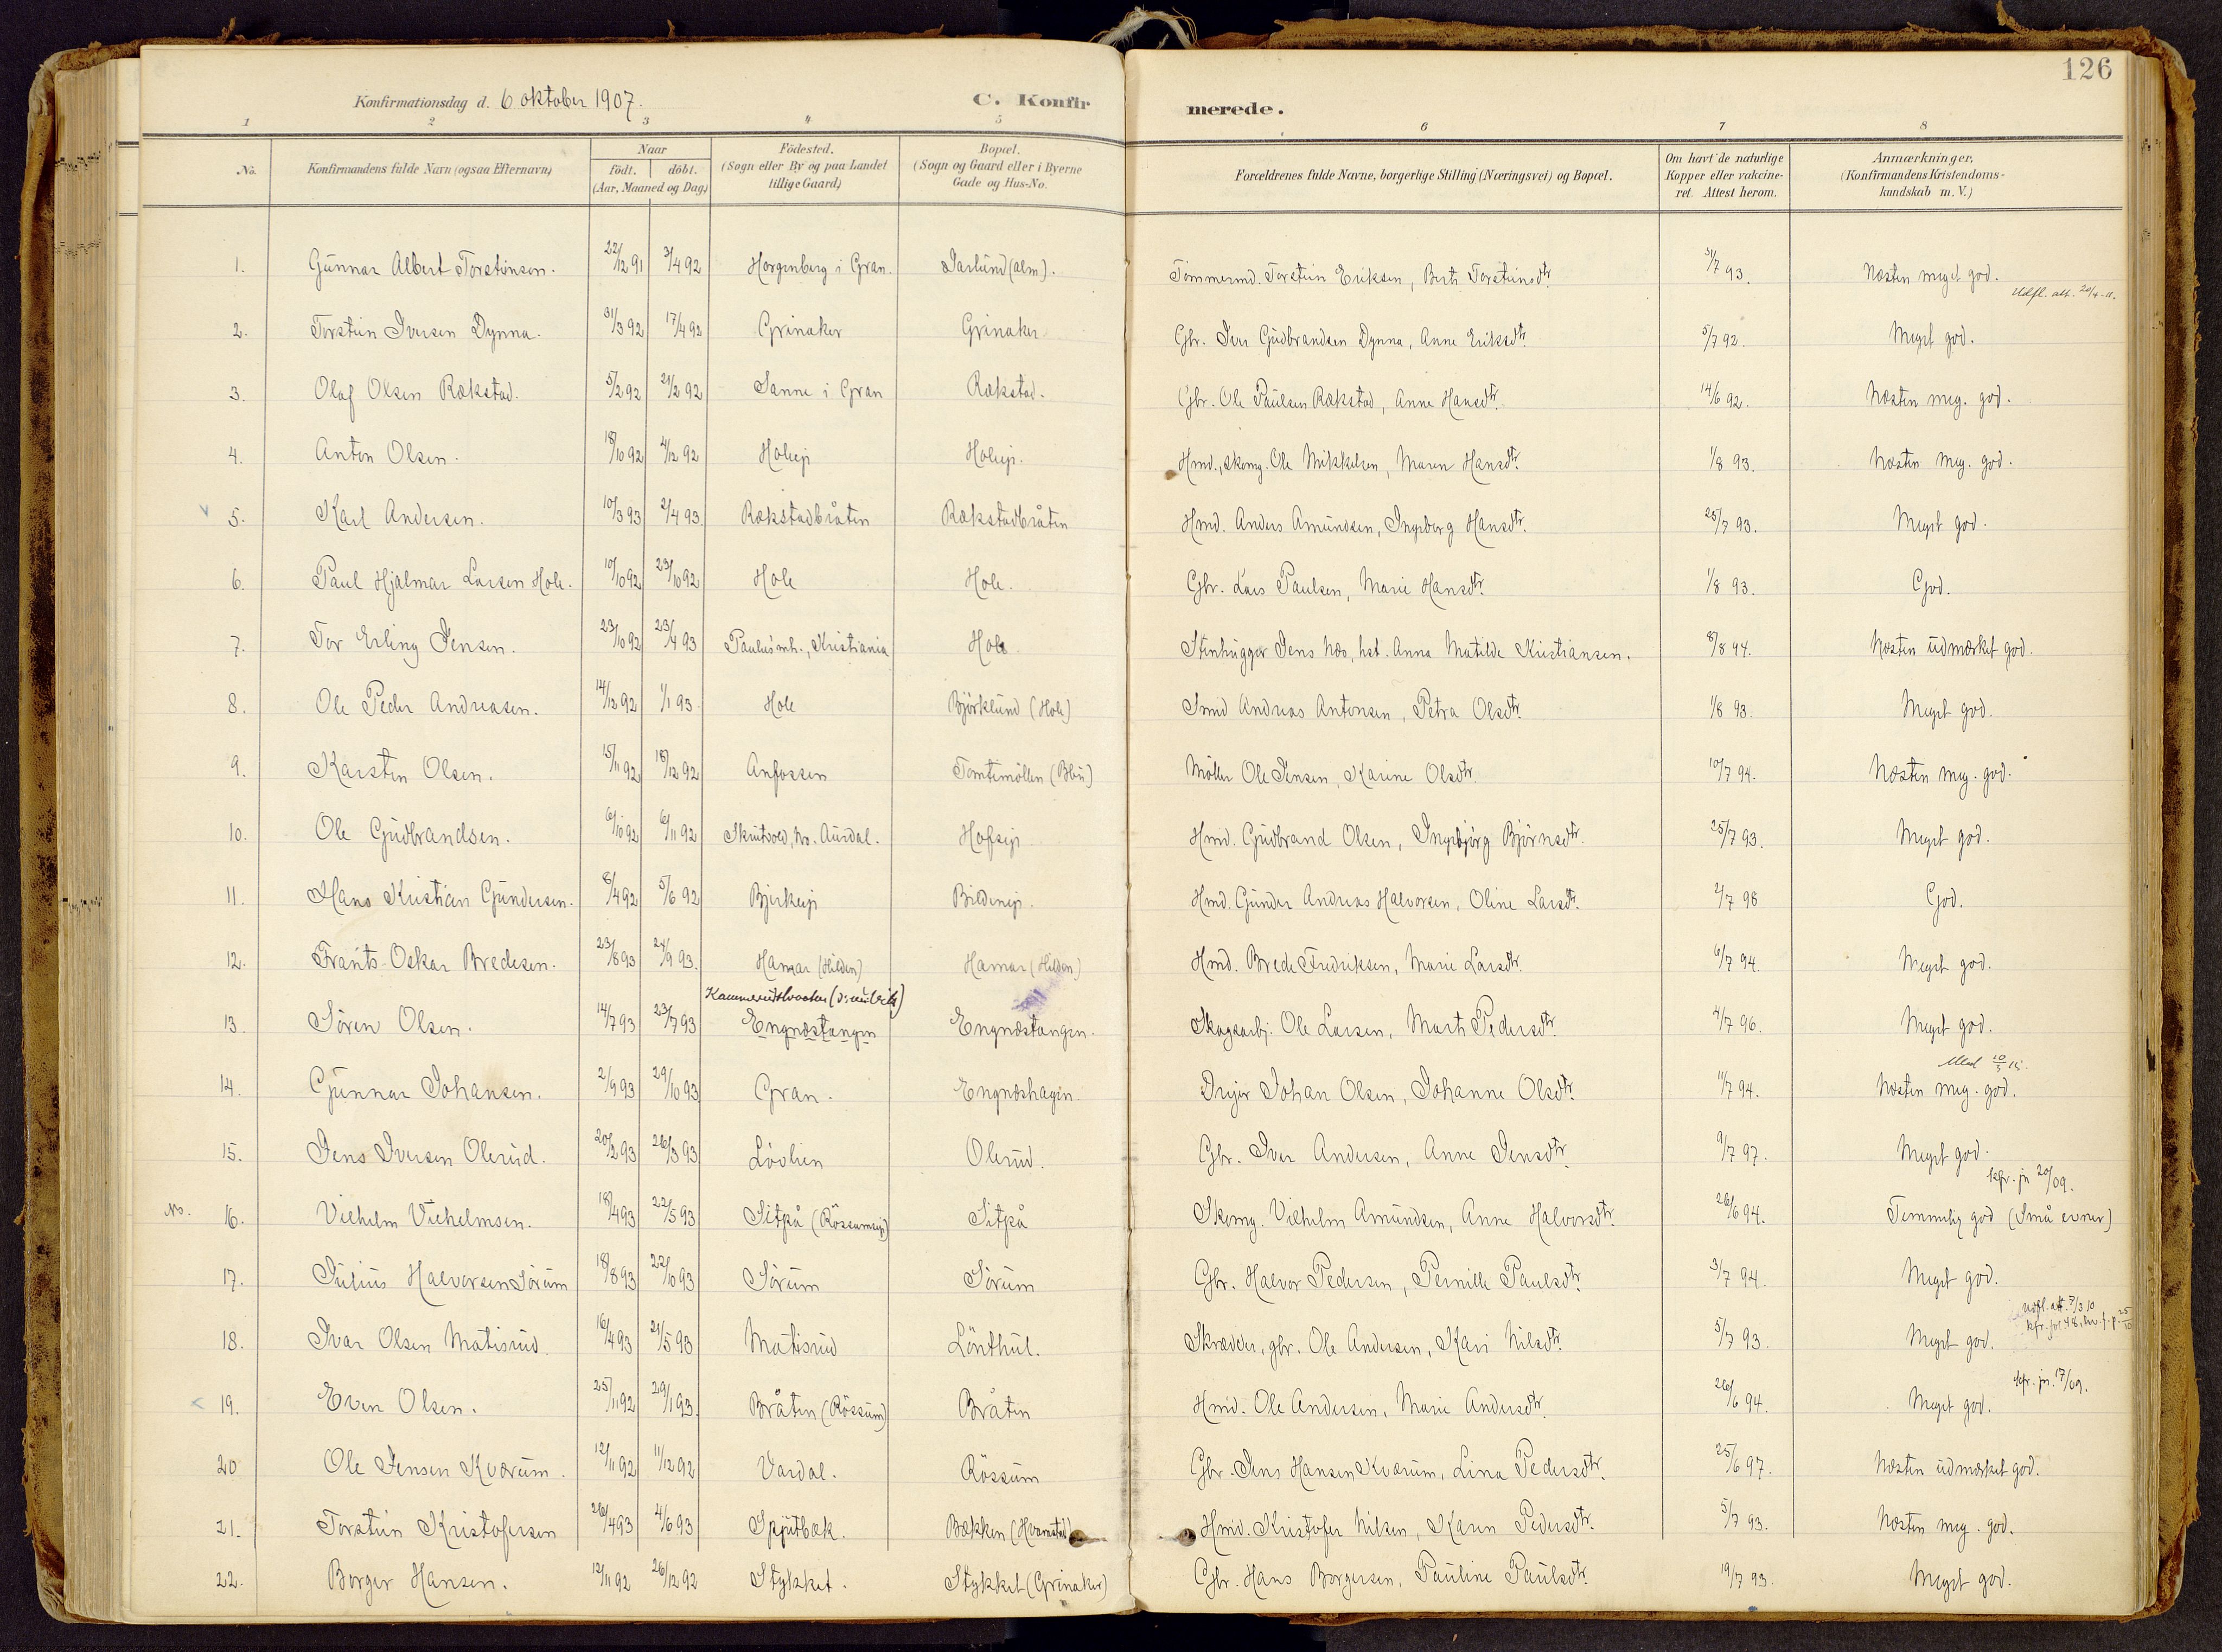 126
Konfirmationsdag d. 6 oktober 1907. C. Konfir merede.
1 2 3 4 5 6 7 8
No. Konfirmandens fulde Navn (ogsaa Efternavn) Naar födt. döbt. (Aar, Maaned og Dag) Födested. (Sogn eller By og paa Landet tillige Gaard) Bopæl. (Sogn og Gaard eller i Byerne Gade og Hus-No. Forældrenes fulde Navne, borgerlige Stilling (Næringsvei) og Bopæl. Om havt de naturlige Kopper eller vakcineret. Attest herom. Anmærkninger, (Konfirmandens Kristendomskundskab m. V.)
1. Gunnar Albert Torsteinsen. 22/12 91 3/4 92 Horgenberg i Gran. Jarlund (alm). Tömmermd. Torstein Eriksen, Berte Torsteinsdtr. 31/7 93. Næsten meget god.
Udfl. att. 20/4-11.
2. Torstein Iversen Dynna. 31/3 92 17/4 92 Grinaker Grinaker Gbr. Iver Gudbrandsen Dynna, Anne Eriksdtr. 5/7 92. Meget god.
3. Olaf Olsen Rækstad. 5/2 92 21/2 92 Sanne i Gran Rækstad. Gbr. Ole Paulsen Rækstad, Anne Hansdtr. 14/6 92. Næsten meg. god.
4. Anton Olsen. 18/10 92 4/12 92 Holeej Holeej. Hmd., skomg. Ole Mikkelsen, Maren Hansdtr. 1/8 93. Næsten meg. god.
5. Karl Andersen. 10/3 93 2/4 93. Rækstadbråten Rækstadbråten Hmd. Anders Amundsen, Ingeborg Hansdtr. 25/7 93. Meget god.
6. Paul Hjalmar Larsen Hole. 10/10 92 23/10 92 Hole Hole. Gbr. Lars Paulsen, Marie Hansdtr. 1/8 93. God.
7. Tor Erling Jensen. 23/10 92 23/4 93 Paulus mh., Kristiania Hole. Stenhugger Jens Næs, hst. Anna Matilde Kristiansen. 8/8 94. Næsten udmærket god.
8. Ole Peder Andreasen. 14/12 92 1/1 93. Hole Björklund (Hole) Smed Andreas Antonsen, Petra Olsdtr. 1/8 93. Meget god.
9. Karsten Olsen. 15/11 92 18/12 92 Anfossen Tomtemöllen (Bbu) Möller Ole Jensen, Karine Olsdtr. 10/7 94. Næsten meg. god.
10. Ole Gudbrandsen. 6/10 92 6/11 92 Skrutvold, No. Aurdal. Hofseje Hmd. Gudbrand Olsen, Ingebjörg Björnsdtr. 25/7 93. Meget god.
11. Hans Kristian Gundersen. 8/4 92 5/6 92 Bjerkeje Bildeneje. Hmd. Gunder Andreas Halvorsen, Oline Larsdtr. 2/7 98 God.
12. Frants Oskar Bredesen. 23/8 93 24/9 93. Hamar (Hilden) Hamar (Hilden) Hmd. Brede Fredriksen, Marie Larsdtr. 6/7 94. Meget god.
13. Sören Olsen. 14/7 93 23/7 93 Engnæstangen Engnæstangen. Skogsarbj. Ole Larsen, Marte Pedersdtr. 4/7 96. Meget god.
14. Gunnar Johansen. 2/9 93 29/10 93 Gran. Engnæshagen. Drejer Johan Olsen, Johanne Olsdtr. 11/7 94. Næsten meg. god.
15. Jens Iversen Olerud. 20/2 93 26/3 93 Lövlien Olerud. Gbr. Iver Andersen, Anne Jensdtr. 9/7 97. Meget god.
kfr. jn 20/09.
No. 16. Vilhelm Vilhelmsen. 18/4 93 22/5 93 Sitpå (Rössumeje) Sitpå Skomg. Vilhelm Amundsen, Anne Halvorsdtr. 26/6 94. Temmelig god (Små evner)
17. Julius Halvorsen Sörum 18/8 93 22/10 93 Sörum Sörum Gbr. Halvor Pedersen, Pernille Paulsdtr. 3/7 94. Meget god.
Udfl. att. 7/3 10
18. Ivar Olsen Matisrud. 16/4 93 21/5 93 Matisrud Lönthul. Skrædder, gbr. Ole Andersen, Kari Nilsdtr. 5/7 93. Meget god.
kfr. jn. 7/09.
19. Even Olsen. 25/11 92 29/1 93. Bråten (Rössum) Bråten Hmd. Ole Andersen, Marie Andersdtr. 26/6 94. Meget god.
20 Ole Jensen Kværum. 12/11 92 11/12 92 Vardal. Rössum Gbr. Jens Hansen Kværum, Lina Pedersdtr. 25/6 97. Næsten udmærket god.
21. Torstein Kristofersen 26/4 93 4/6 93 Spjutbæk. Bækken (Hvamstad) Hmd. Kristofer Nilsen, Karen Pedersdtr. 5/7 93. Næsten meg. god.
22. Borger Hansen. 12/11 92 26/12 92 Stykket. Stykket (Grinaker) Gbr. Hans Borgersen, Pauline Paulsdtr. 19/7 93. Meget god.